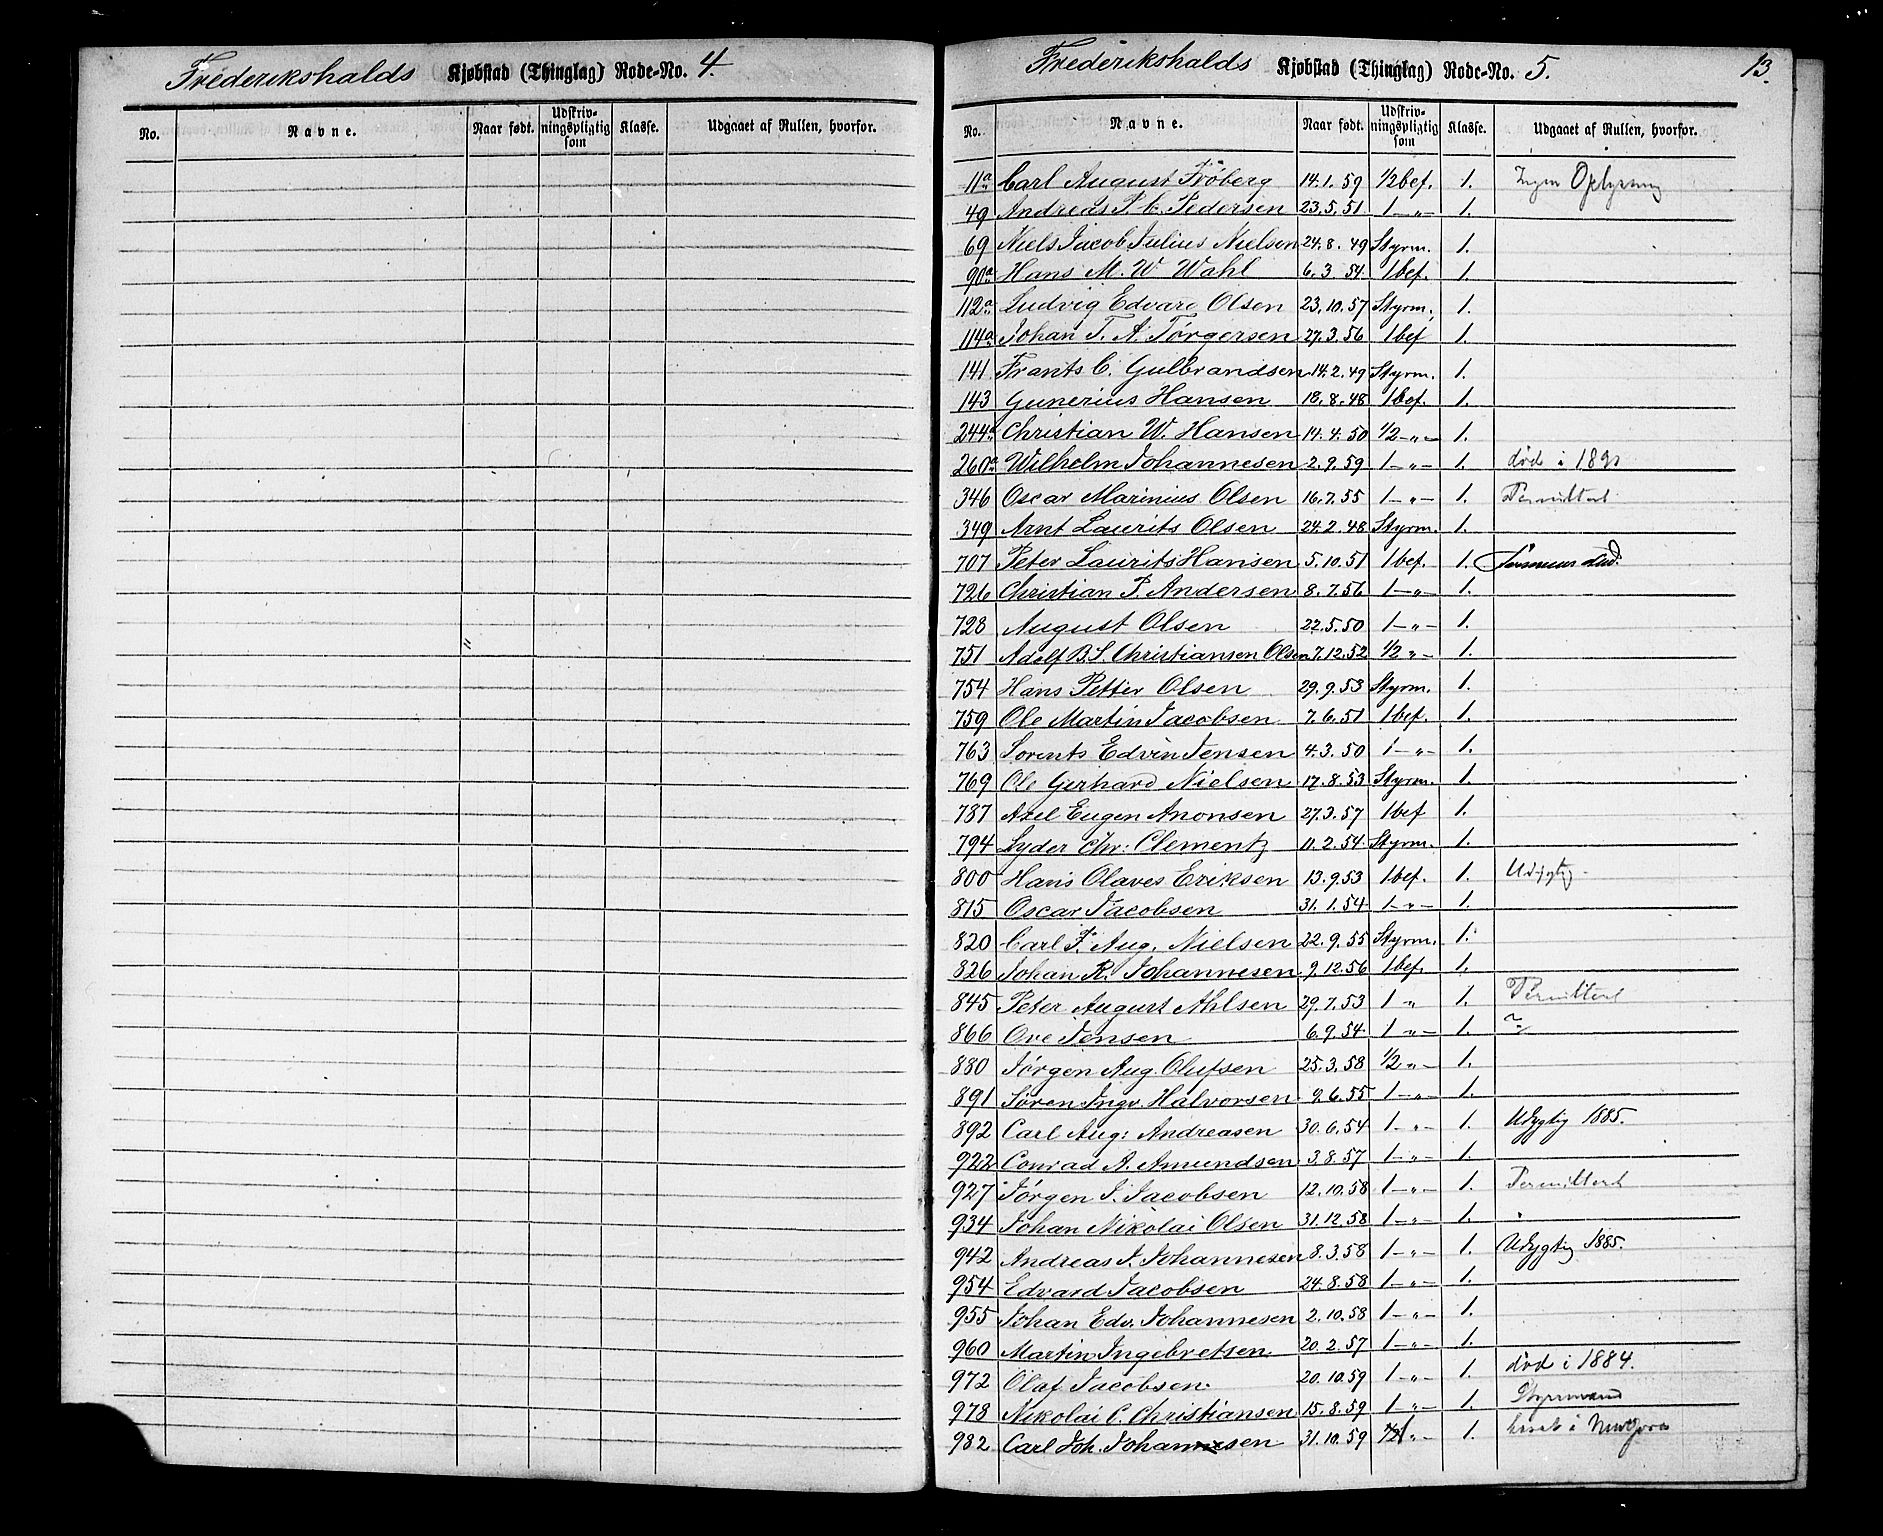 Frederikshalds Kjøbstad (Thinglag) Rode-No. 4.
No. Navne. Naar født. Udskrivningspligtig som Klasse. Udgaaet af Rullen, hvorfor.
"
Frederikshalds Kjøbstad (Thinglag) Rode-No. 5. 13.
No. Navne. Naar født. Udskrivningspligtig som Klasse. Udgaaet af Rullen, hvorfor.
11a Carl August Fröberg 14.1.59 1/2 bef. 1. Ingen Oplysning
49 Andreas P. C. Pedersen 23.5.51 1 -„- 1.
69 Niels Jacob Julius Nielsen 24.8.49 Styrm. 1.
90a Hans M. W Wahl 6.3 54. 1 bef. 1.
112a Ludvig Edvard Olsen 23.10.57 Styrm. 1.
114a Johan T. A. Törgersen 27.3.56 1 bef 1.
141 Frants C. Gulbrandsen 14.2.49 Styrm. 1.
143 Gunerius Hansen 12.8.48 1 bef. 1.
244a Christian W. Hansen 14.4.50 1/2 -„- 1.
260a Wilhelm Johannesen 2.9.59 1 -„- 1. död i 1891
346 Oscar Marinius Olsen 16.7.55 1 -„- 1. Permittert
349 Arnt Laurits Olsen 24.2.48 Styrm. 1.
707 Peter Laurits Hansen 5.10.51 1 bef. 1.
726 Christian P. Andersen 8.7.56 1 -„- 1.
728 August Olsen 22.5.50 1 -„- 1.
751 Adolf B. S. Christiansen Olsen 7.12.52 1/2 „- 1.
754 Hans Petter Olsen 29.9.53 Styrm. 1.
759 Ole Martin Jacobsen 7.6.51 1 bef. 1.
763 Lorents Edvin Jensen 4.3.50 1 -„- 1.
769 Ole Gerhard Nielsen 17.8.53 Styrm. 1.
787 Axel Eugen Anonsen 27.3.57 1 bef 1.
794 Lyder Chr: Clementz 11.2.54 Styrm. 1.
800 Hans Olaves Eriksen 13.9.53 1 bef. 1. Udygtig
815 Oscar Jacobsen 31.1.54 1 -„- 1.
820 Carl F. Aug. Nielsen 22.9.55 Styrm. 1.
826 Johan R. Johannesen 9.12.56 1 bef. 1.
845 Peter August Ahlsen 29.7.53 1 „ 1. Permittert
866 Ove Jensen 6.9.54 1 -„- 1.
880 Jörgen Aug. Olufsen 25.3.58 1/2 „- 1.
891 Sören Ingv. Halvorsen 9.6.55 1 -„- 1.
892 Carl Aug: Andreasen 30.6.54 1 -„- 1. Udygtig 1885.
922 Conrad A. Amundsen 3.8.57 1 -„- 1.
927 Jörgen J. Jacobsen 12.10.58 1 -„- 1. Permittert
934 Johan Nikolai Olsen 31.12.58 1 -„- 1.
942 Andreas J. Johannesen 8.3.58 1 -„- 1. Udygtig 1885.
954 Edvard Jacobsen 24.8.58 1 -„- 1.
955 Johan Edv. Johannesen 2.10.58 1 -„- 1.
960 Martin Ingebretsen 20.2.57 1 -„- 1.
972 Olaf Jacobsen 20.10.59 1 -„- 1. död i 1884.
978 Nikolai C. Christiansen 15.8.59 1 -„- 1. Styrmand
982 Carl Joh. Johannesen 31.10.59 „- 1.